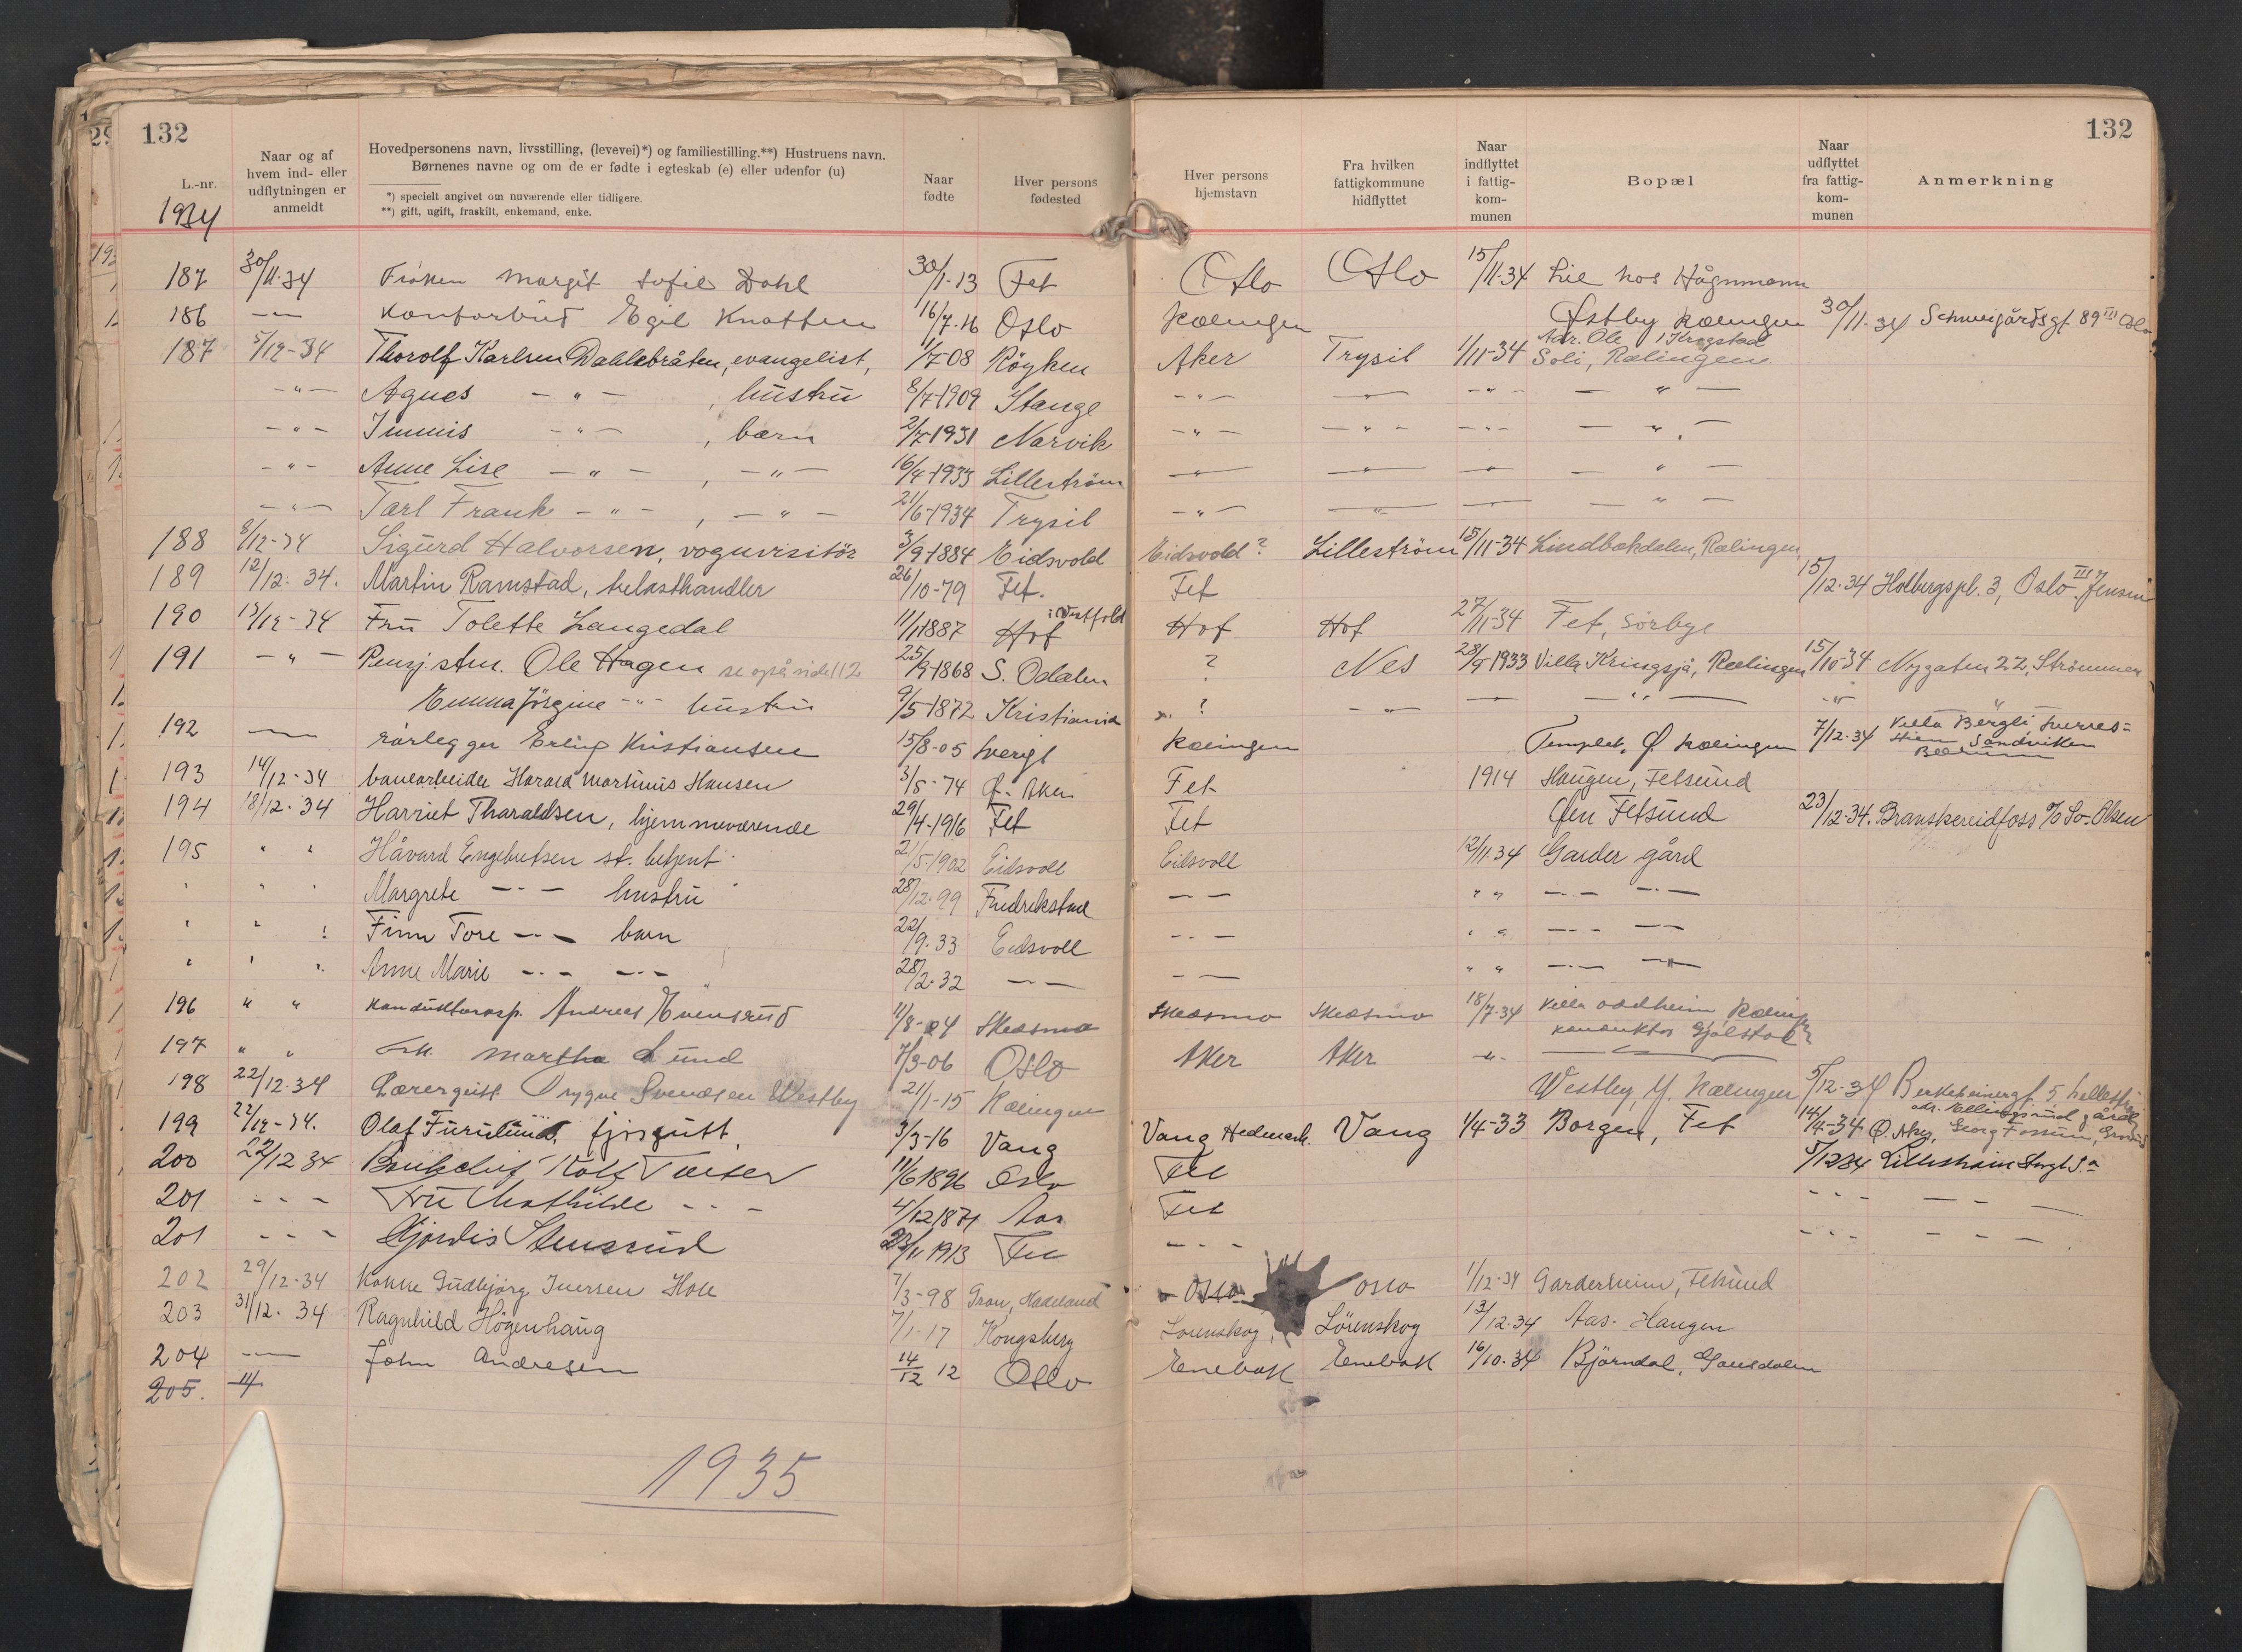 132
132
L.-nr.
Naar og af hvem ind- eller udflytningen er anmeldt
Hovedpersonens navn, livsstilling, (levevei)*) og familiestilling.**) Hustruens navn.
Børnenes navne og om de er fødte i egteskab (e) eller udenfor (u)
*) specielt angivet om nuværende eller tidligere.
**) gift, ugift, fraskilt, enkemand, enke.
Naar fødte
Hver persons fødested
Hver persons hjemstavn
Fra hvilken fattigkommune hidflyttet
Naar indflyttet i fattigkommunen
Bopæl
Naar udflyttet fra fattigkommunen
Anmerkning
1934
187 30/11-34 Frøken Margit Sofie Dahl 30/1-13 Fet Oslo Oslo 15/11-34 Lie hos
186 -"- Kontorbud Egil Knatten 16/7-16 Oslo Rælingen Østby Rælingen 30/11-34 Schweigårdsgt. 89 III Oslo
187 5/12-34 Thorolf Karlsen Dahlebråten, evangelist, 1/7-08 Röyken Aker Trysil 1/11-34 Adr. Ole Krogstad
Soli, Rælingen
-"- Agnes -"- , hustru 8/7-1909 Stange -"- -"- -"- -"-
-"- -"- , barn 2/7-1931 Narvik -"- -"- -"- -"-
-"- Anne Lise -"- , -"- 16/4-1933 Lilleström -"- -"- -"- -"-
-"- Tarl Frank -"- , -"- 21/6-1934 Trysil -"- -"- -"- -"-
188 8/12-34 Sigurd Halvorsen, vognvisitör 3/9-1884 Eidsvold Eidsvold? Lilleström 15/11-34 Lindbækdalen, Rælingen
189 12/12-34. Martin Ramstad, trelasthandler 26/10-79 Fet. Fet 15/12-34 Holbergspl. 3, Oslo III Jensen
190 13/12-34 Fru Tolette Langedal 11/1 1887 Hof i Vestfold Hof Hof 27/11-34 Fet, Sörbye
191 -"- Pensj. Ole Hagen se også side 112 25/9-1868 S. Odalen ? Nes 28/9-1933 Villa Kringsjå, Rælingen 15/10-34 Nygaten 22, Strömmen
Emma Jörgine -"- hustru 9/5-1872 Kristiania ? -"- -"- -"- -"- "
192 -"- rørlegger Erling Kristiansen 15/8-05 Sverige Rælingen Templet, Ø. Rælingen 7/12-34 Villa Bergli
Sandviken
Bærum
193 14/12-34 banearbeider Harald Martinius Hansen 3/5-74 Ø. Aker Fet 1914 Haugen, Fetsund
194 18/12-34 Harriet Tharaldsen, hjemmeværende 29/4-1916 Fet Fet Øen Fetsund 23/12-34. Branskereidfoss c/o So. Olsen
195 " " Håvard Engebretsen st. betjent 21/5-1902 Eidsvoll Eidsvoll 12/11-34 Garder gård
" " " Margrete -"- hustru 28/12-99 Fredrikstad -"- " " -"- -"-
" " " Finn Tore -"- barn 22/9-33 Eidsvoll -"- " " -"- -"-
" " " Anne Marie -"- -"- 28/2-32 -"- -"- " " -"- -"-
196 " " Konduktørasp. Andreas Evensrud 11/8-04 Skedsmo Skedsmo Skedsmo 18/7-34 Villa Oddheim Ræling
konduktør Gjølstad
197 " " Frk. Martha Lund 7/3-06 Oslo Aker Aker -"-
198 22/12-34 Lærergutt Trygve Svendsen Westby 21/1-15 Rælingen Westby, Y. Rælingen 5/12-34
199 22/12-34. Olaf Furulund, fjøsgutt, 3/3-16 Vang Vang Hedmark. Vang 1/4-33 Borgen, Fet 14/4-34 Ø. Aker, Georg Fossum,
200 22/12 34 Rolf 11/6 1896 Oslo Fet 5/12 34
201 - - - Fru Mathilde - - - 4/12 1871 Aas Fet - - - - - -
201 - - - Hjørdis Stensrud 23/11 1913 Fet - - - - - - - - -
202 29/12-34 Kokke Gudbjørg Iversen Hole 7/3-98 Gran, Hadeland Oslo Oslo 1/12-34 Garderheim, Fetsund
203 31/12-34 Ragnhild Högenhaug 7/1-17 Kongsberg Lörenskog, Lörenskog 13/12-34 Aas-Haugen
204 -"- John Andresen 14/12 12 Oslo Enebak Enebak 16/10-34 Björndal, Gansdalen
205.
1935